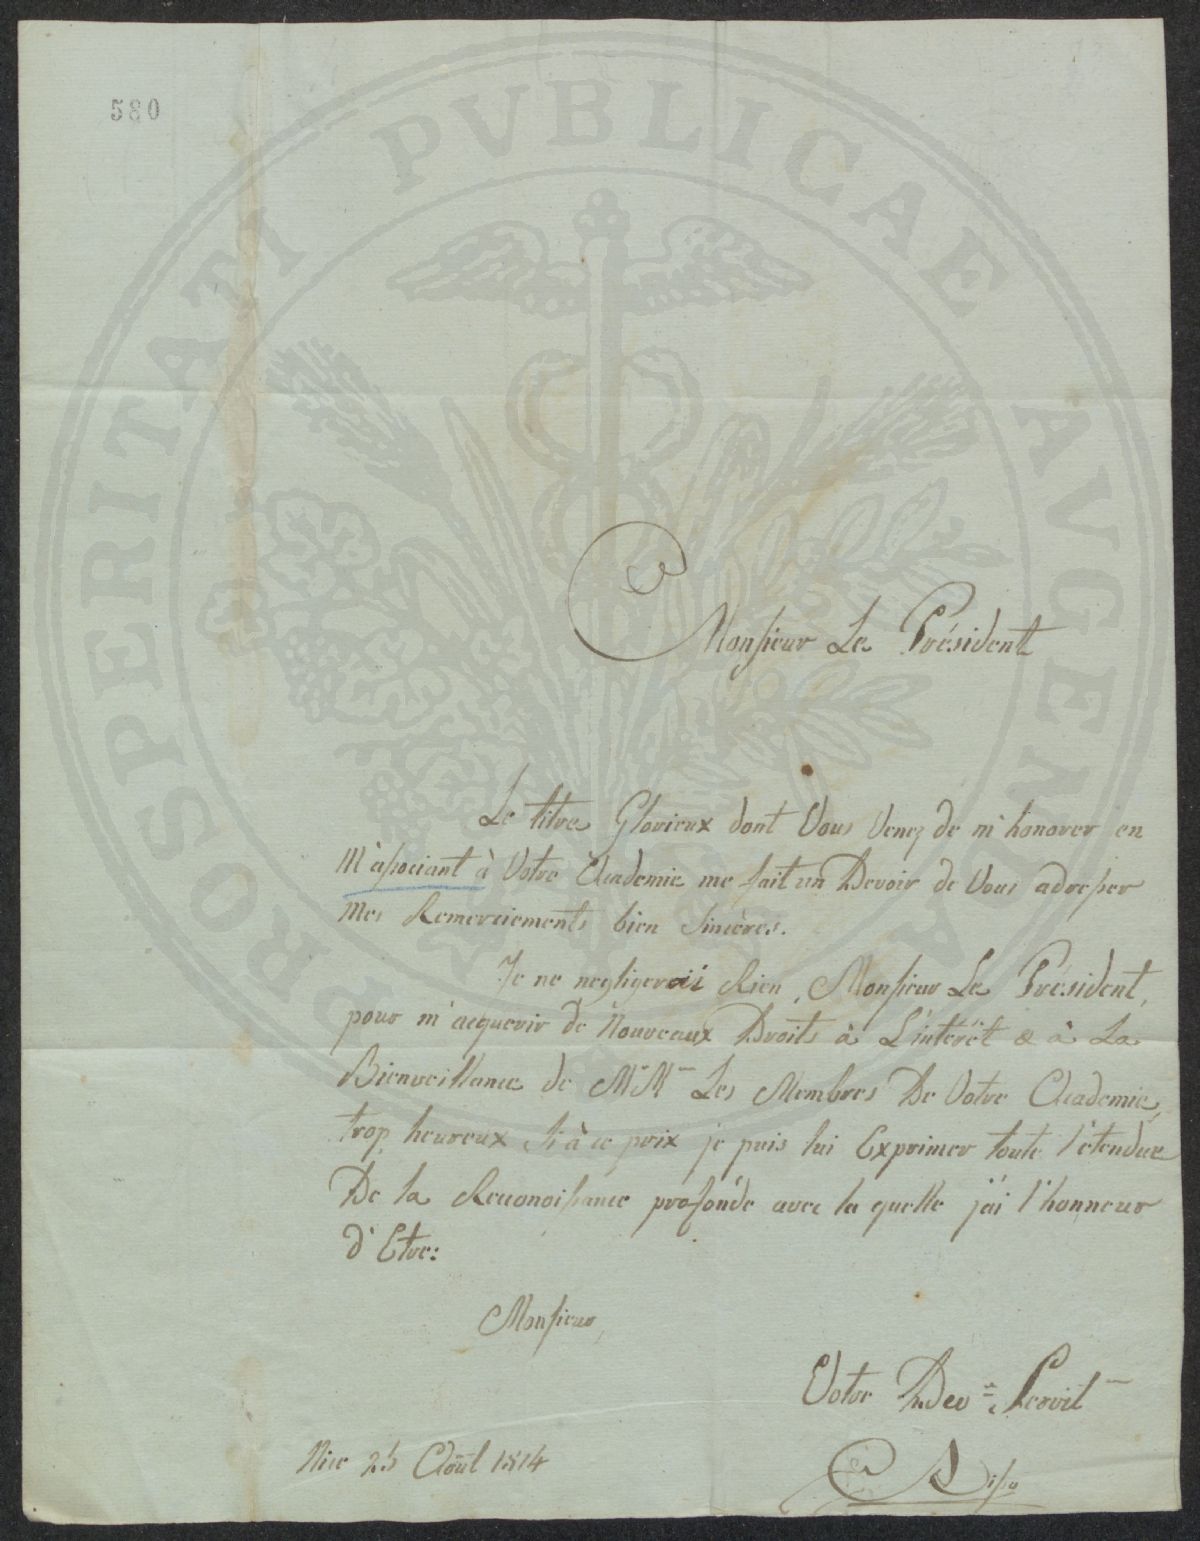 580
PROSPERITATI PVBLICAE AVGENDAE
Monsieur Le Président
Le titre Glorieux dont Vous Venez de m'honorer en
M'associant à Votre Academie me fait un Devoir de Vous adresser
Mes Remerciements bien Sincères.
Je ne negligerois Rien, Monsieur Le Président,
pour m'acquerir de Nouveaux Droits à L'intérêt & à La
Bienveillance de MrMrs Les Membres De Votre Academie,
trop heureux Si à ce prix je puis lui Exprimer toute l'étendue
De la Reconoissance profonde avec la quelle j'ai l'honneur
d'Etre:
Monsieur,
Votre Dev Servit
Nice 25 Août 1814
Risso